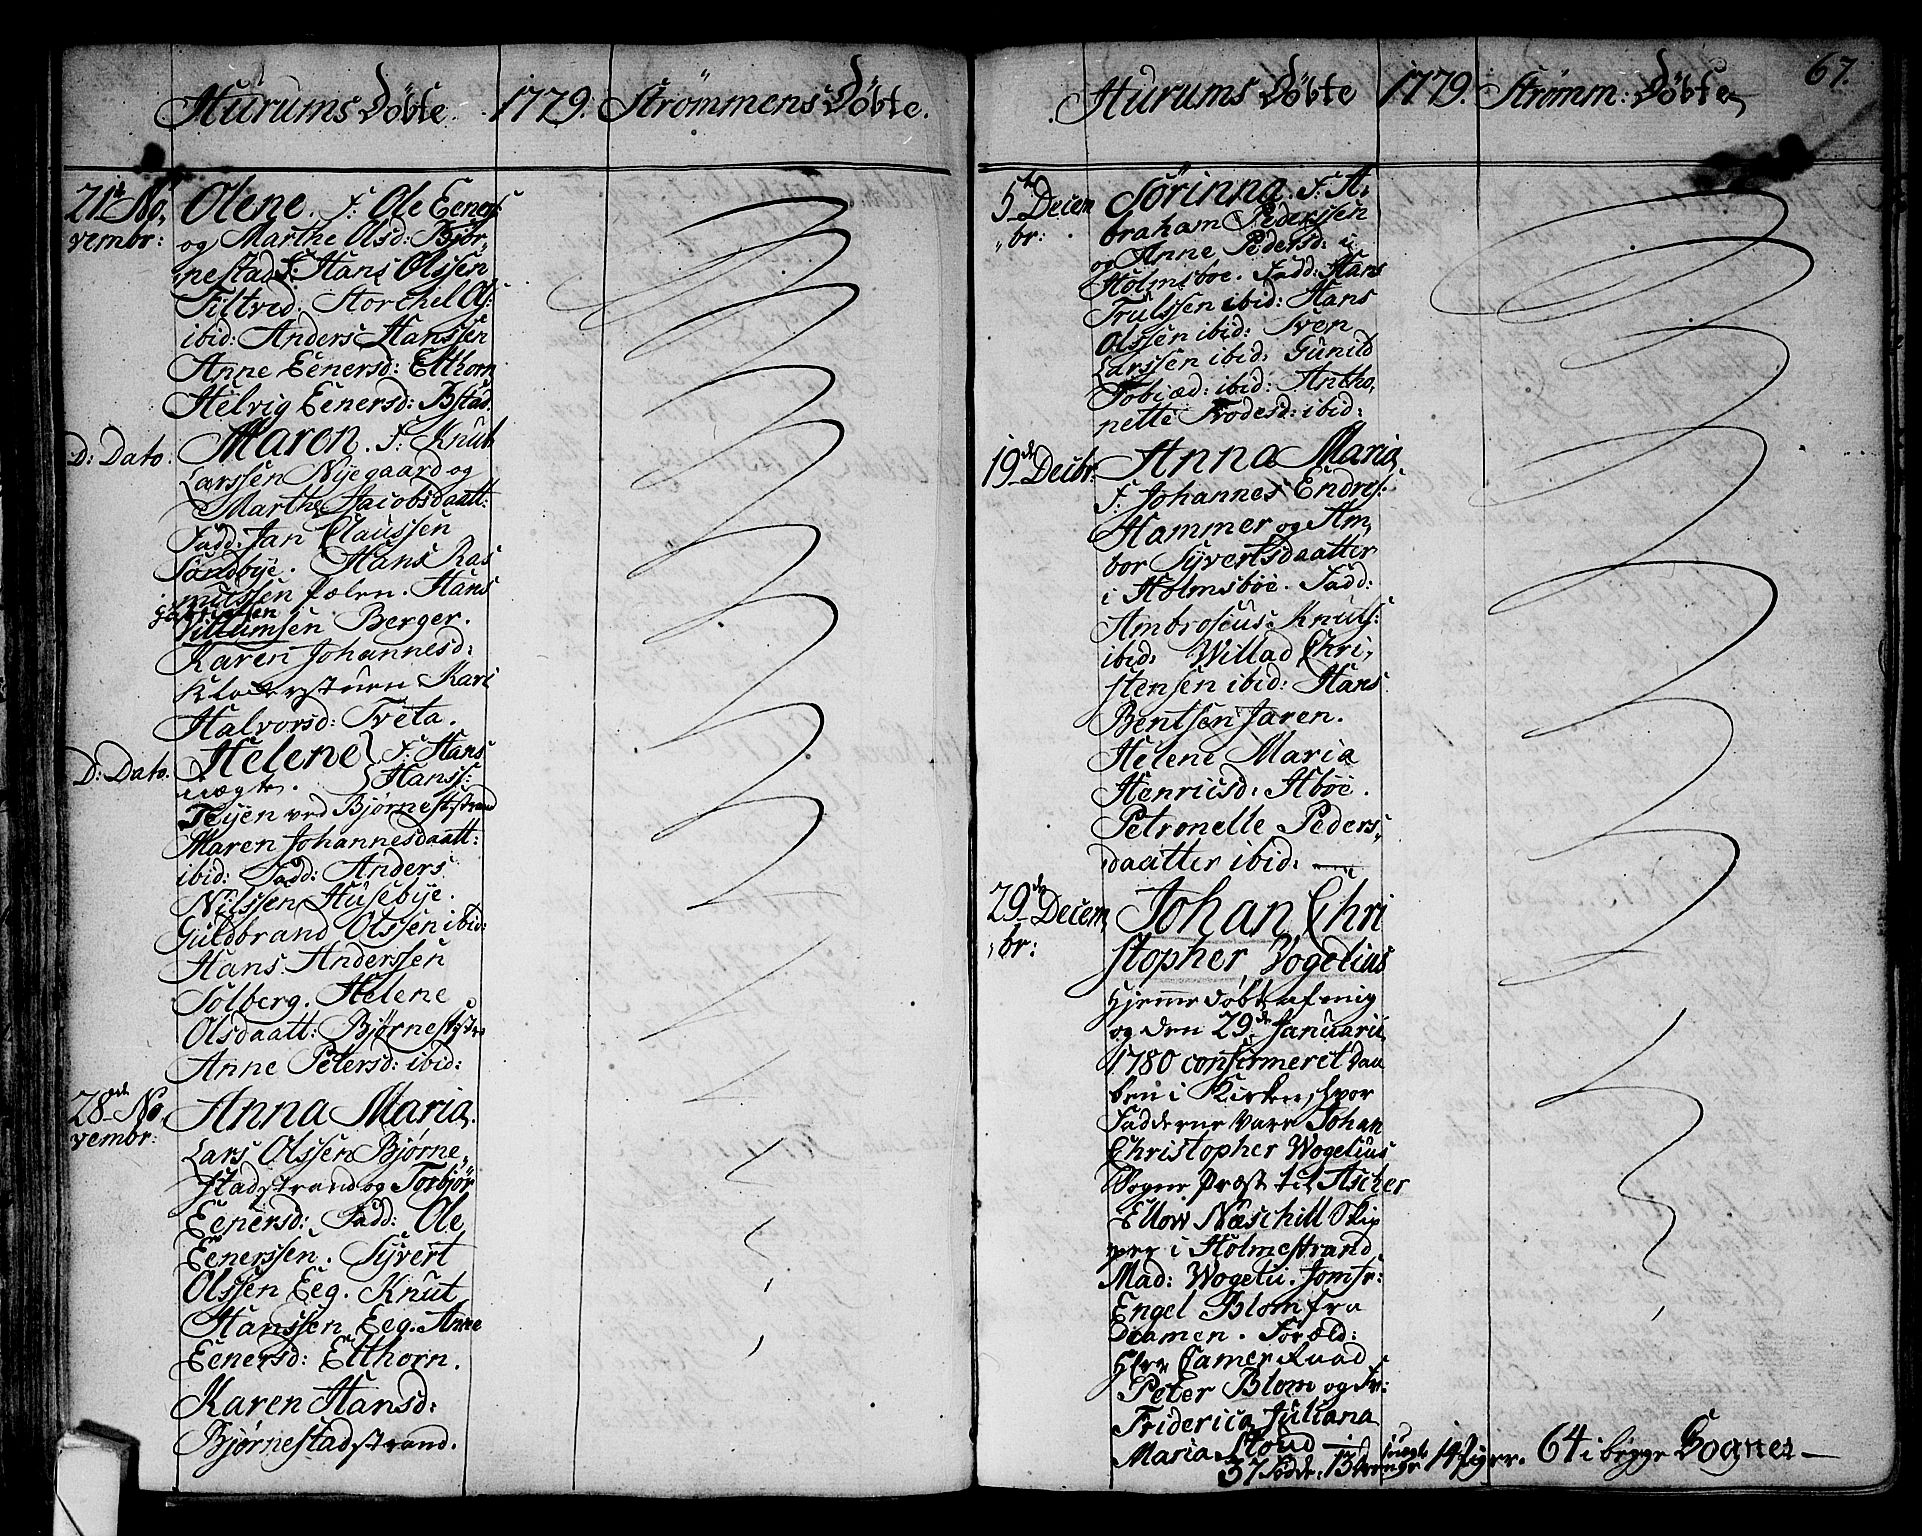 Hurums Döbte. 1779. Strömmens Döbte.
21de No,
vembr:
Olene. F: Ole Eeners:
og Marthe Olsd: Bjør,
nestad F: Hans Olssen
Filtvid. Storchel Ols:
ibid: Anders Hanssen
Anne Eenersd: Elthorn
Helvig Eenersd: Bstad.
D: Dato.
Maren. F: Knut
Larssen Nyegaard og
Marthe Jacobsdaatt:
Fadd: Jan Claussen
Søndbye. Hans Ras
mussen Pælen. Hans
Villumsen Berger.
Karen Johannesd:
Kari
Halvorsd: Tveta.
D: Dato.
Helene F: Hans
uægte. Hanss:
Teijen ved Bjørnestistrand
Maren Johannesdaatt:
ibid: Fadd: Anders
Nilssen Husebye.
Guldbrand Olssen ibid:
Hans Anderssen
Solberg. Helene
Olsdaatt: Bjørnestistra
Anne Petersd: ibid:
28de No,
vembr:
Anna Maria.
Lars Olssen Bjørne,
stadstrand og Torbjør
Eenersd: Fadd: Ole
Eenerssen. Syvert
Olssen Eeg. Knut
Hanssen Eeg. Anne
Eenersd: Elthorn.
Karen Hansd:
Bjørnestadstrand.
Hurums Döbte 1779. Strömm: Döbte 67.
5te Decem
br:
Sörinna. F: A,
braham Pederssen
og Anne Pedersd: i
Holmsboe. Fadd: Hans
Trulssen ibid: Hans
Olssen ibid: Sven
Larssen ibid: Gunild
Tobiæd: ibid: Antho,
nette Frodesd: ibid:
19de Decbr:
Anna Maria
F: Johannes Endres:
Hammer og Am,
bor Syvertsdaatter
i Holmsboe. Fadd:
Ambroscus Knuts:
ibid: Willad Chri,
stensen ibid: Hans
Bentsen Jaren.
Helene Maria
Henricsd: Hboe.
Petronelle Peders,
daatter ibid:
29de Decem
br:
Johan Chri
stopher Vogelius
hjemme döbt af mig
og den 29de Januarii
1780 confirmeret Daa
ben i Kirken, hvor
Fadderne vare Johan
Christopher Wogelius
Sogne Præst til Ascher
Ellow Næschill Skip
per i Holmestrand,
Mad: Wogelii. Jomfr:
Engel Blom fra
Dramen. Foræld:
Herr Camer Raad
Peter Blom og Fr:
Friderica Juliana
Maria Stoud
37 64 i begge Sogner